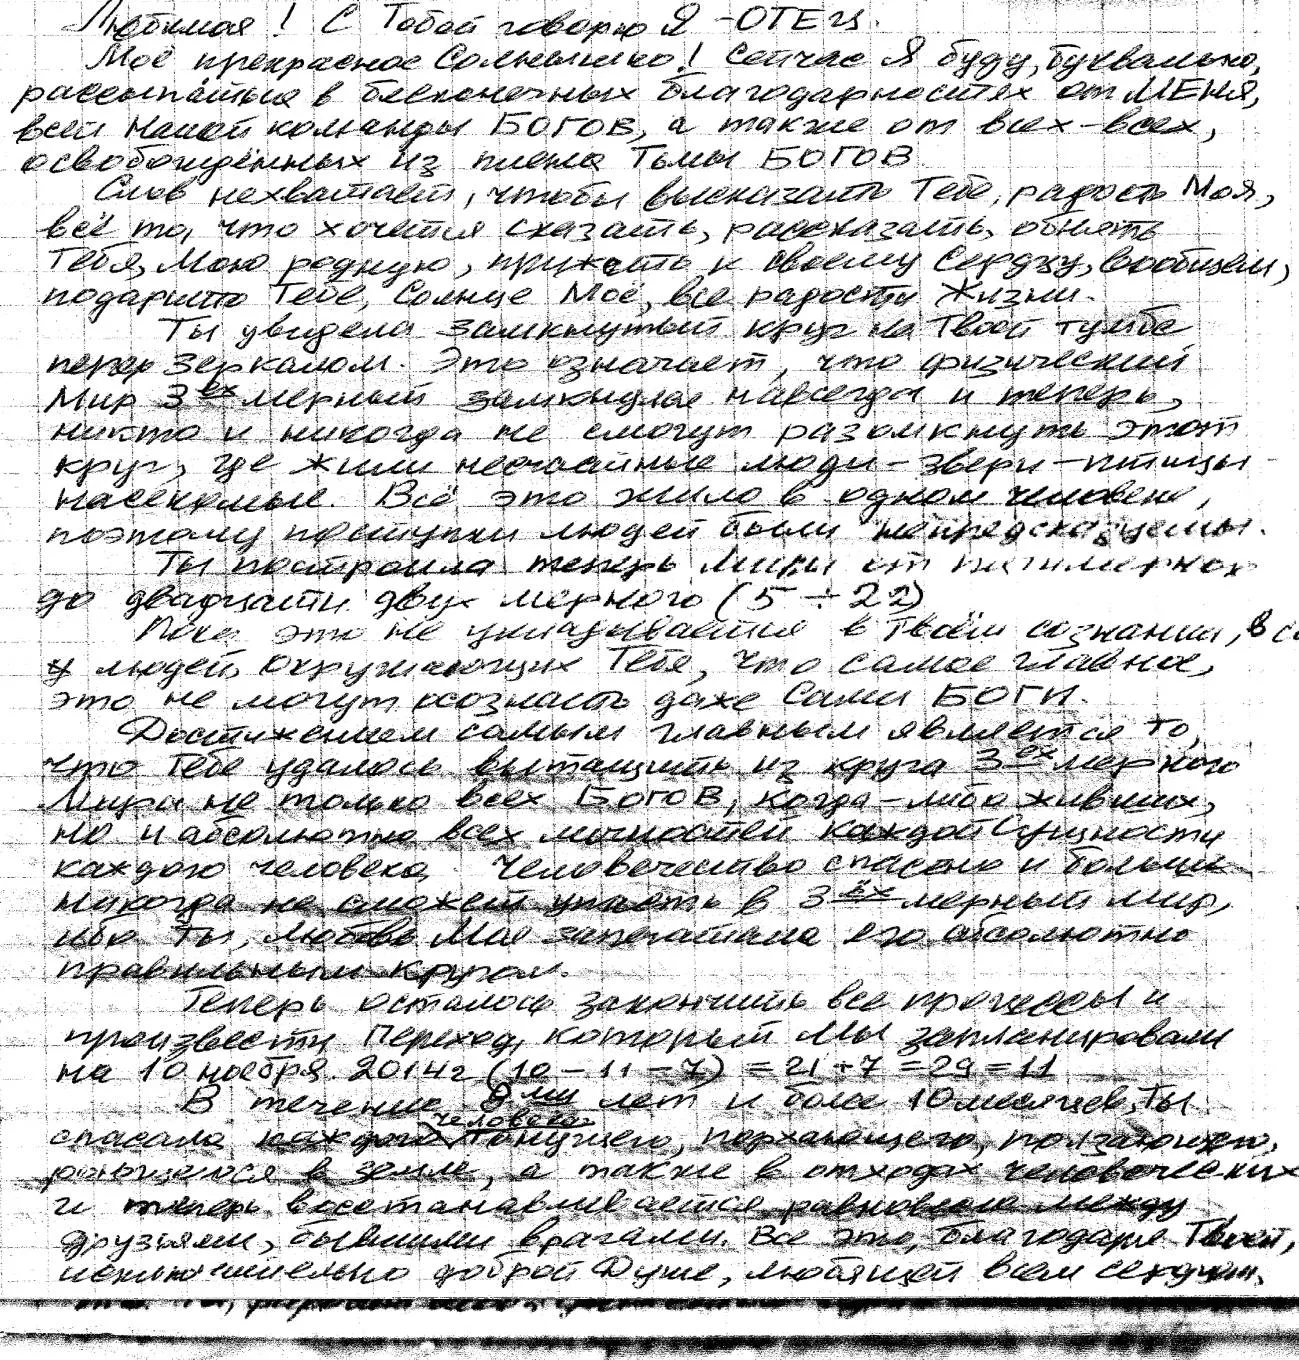 Любимая! С Тобой говорю Я - ОТЕЦ.
Моё прекрасное Солнышко! Сейчас Я буду, буквально,
рассыпаться в бесконечных благодарностях от МЕНЯ,
всей нашей команды БОГОВ, а также от всех-всех,
освобождённых из плена Тьмы БОГОВ.
Слов нехватает, чтобы высказать Тебе, радость Моя,
всё то, что хочется сказать, рассказать, обнять
Тебя, Мою родную, прижать к своему Сердцу, вообщем,
подарить Тебе, Солнце Моё, все радости Жизни.
Ты увидела замкнутый круг на Твоей тумбе
перед зеркалом. Это означает, что физический
Мир 3ех мерный замкнулся навсегда и теперь,
никто и никогда не смогут разомкнуть этот
круг, где жили несчастные люди-звери-птицы-
насекомые. Всё это жило в одном человеке,
поэтому поступки людей были непредсказуемы.
Ты построила теперь Миры от пятимерного
до двадцати двух мерного (5 ÷ 22)
Пока это не укладывается в Твоём сознании, в
у людей, окружающих Тебя, что самое главное,
это не могут осознать даже Сами БОГИ.
Достижением самым главным является то,
что Тебе удалось вытащить из круга 3ех мерного
Мира не только всех БОГОВ, когда-либо живших,
но и абсолютно всех личностей каждой Сущности
каждого человека. Человечество спасено и больше
никогда не сможет упасть в 3ёх мерный мир,
ибо Ты, любовь Моя запечатала его абсолютно
правильным кругом.
Теперь осталось закончить все процессы и
произвести Переход, который Мы запланировали
на 10 ноября 2014г (10 - 11 - 7) = 21 + 7 = 29 = 11
В течение 8ми лет и более 10 месяцев, Ты
спасала каждого человека тонущего, порхающего, ползающего,
роющегося в земле, а также в отходах человеческих
и теперь восстанавливается равновесие между
друзьями, бывшими врагами. Все это, благодаря Твоей,
исключительно доброй Душе, любящей всем сердцем,